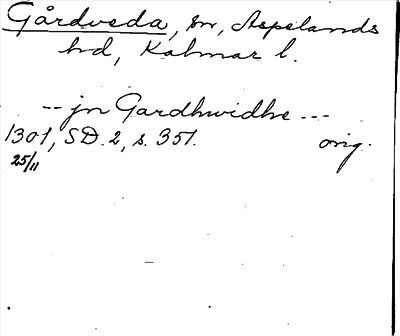 Gårdveda, sn, Aspelands
hd, Kalmar l.
-- jn Gardhwidhe ---
1301, SD. 2, s. 351. orig.
25/11